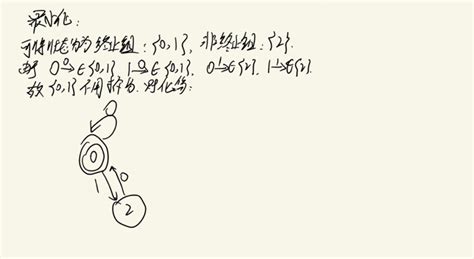 最小化:
可将状态分为终止组:{0,1}, 非终止组:{2}.
对 0 0→ ∈{0,1}, 1 0→ ∈{0,1}, 0 1→ ∈{2}, 1 1→ ∈{2}.
故{0,1}不用拆分.
0
0
1 0
2